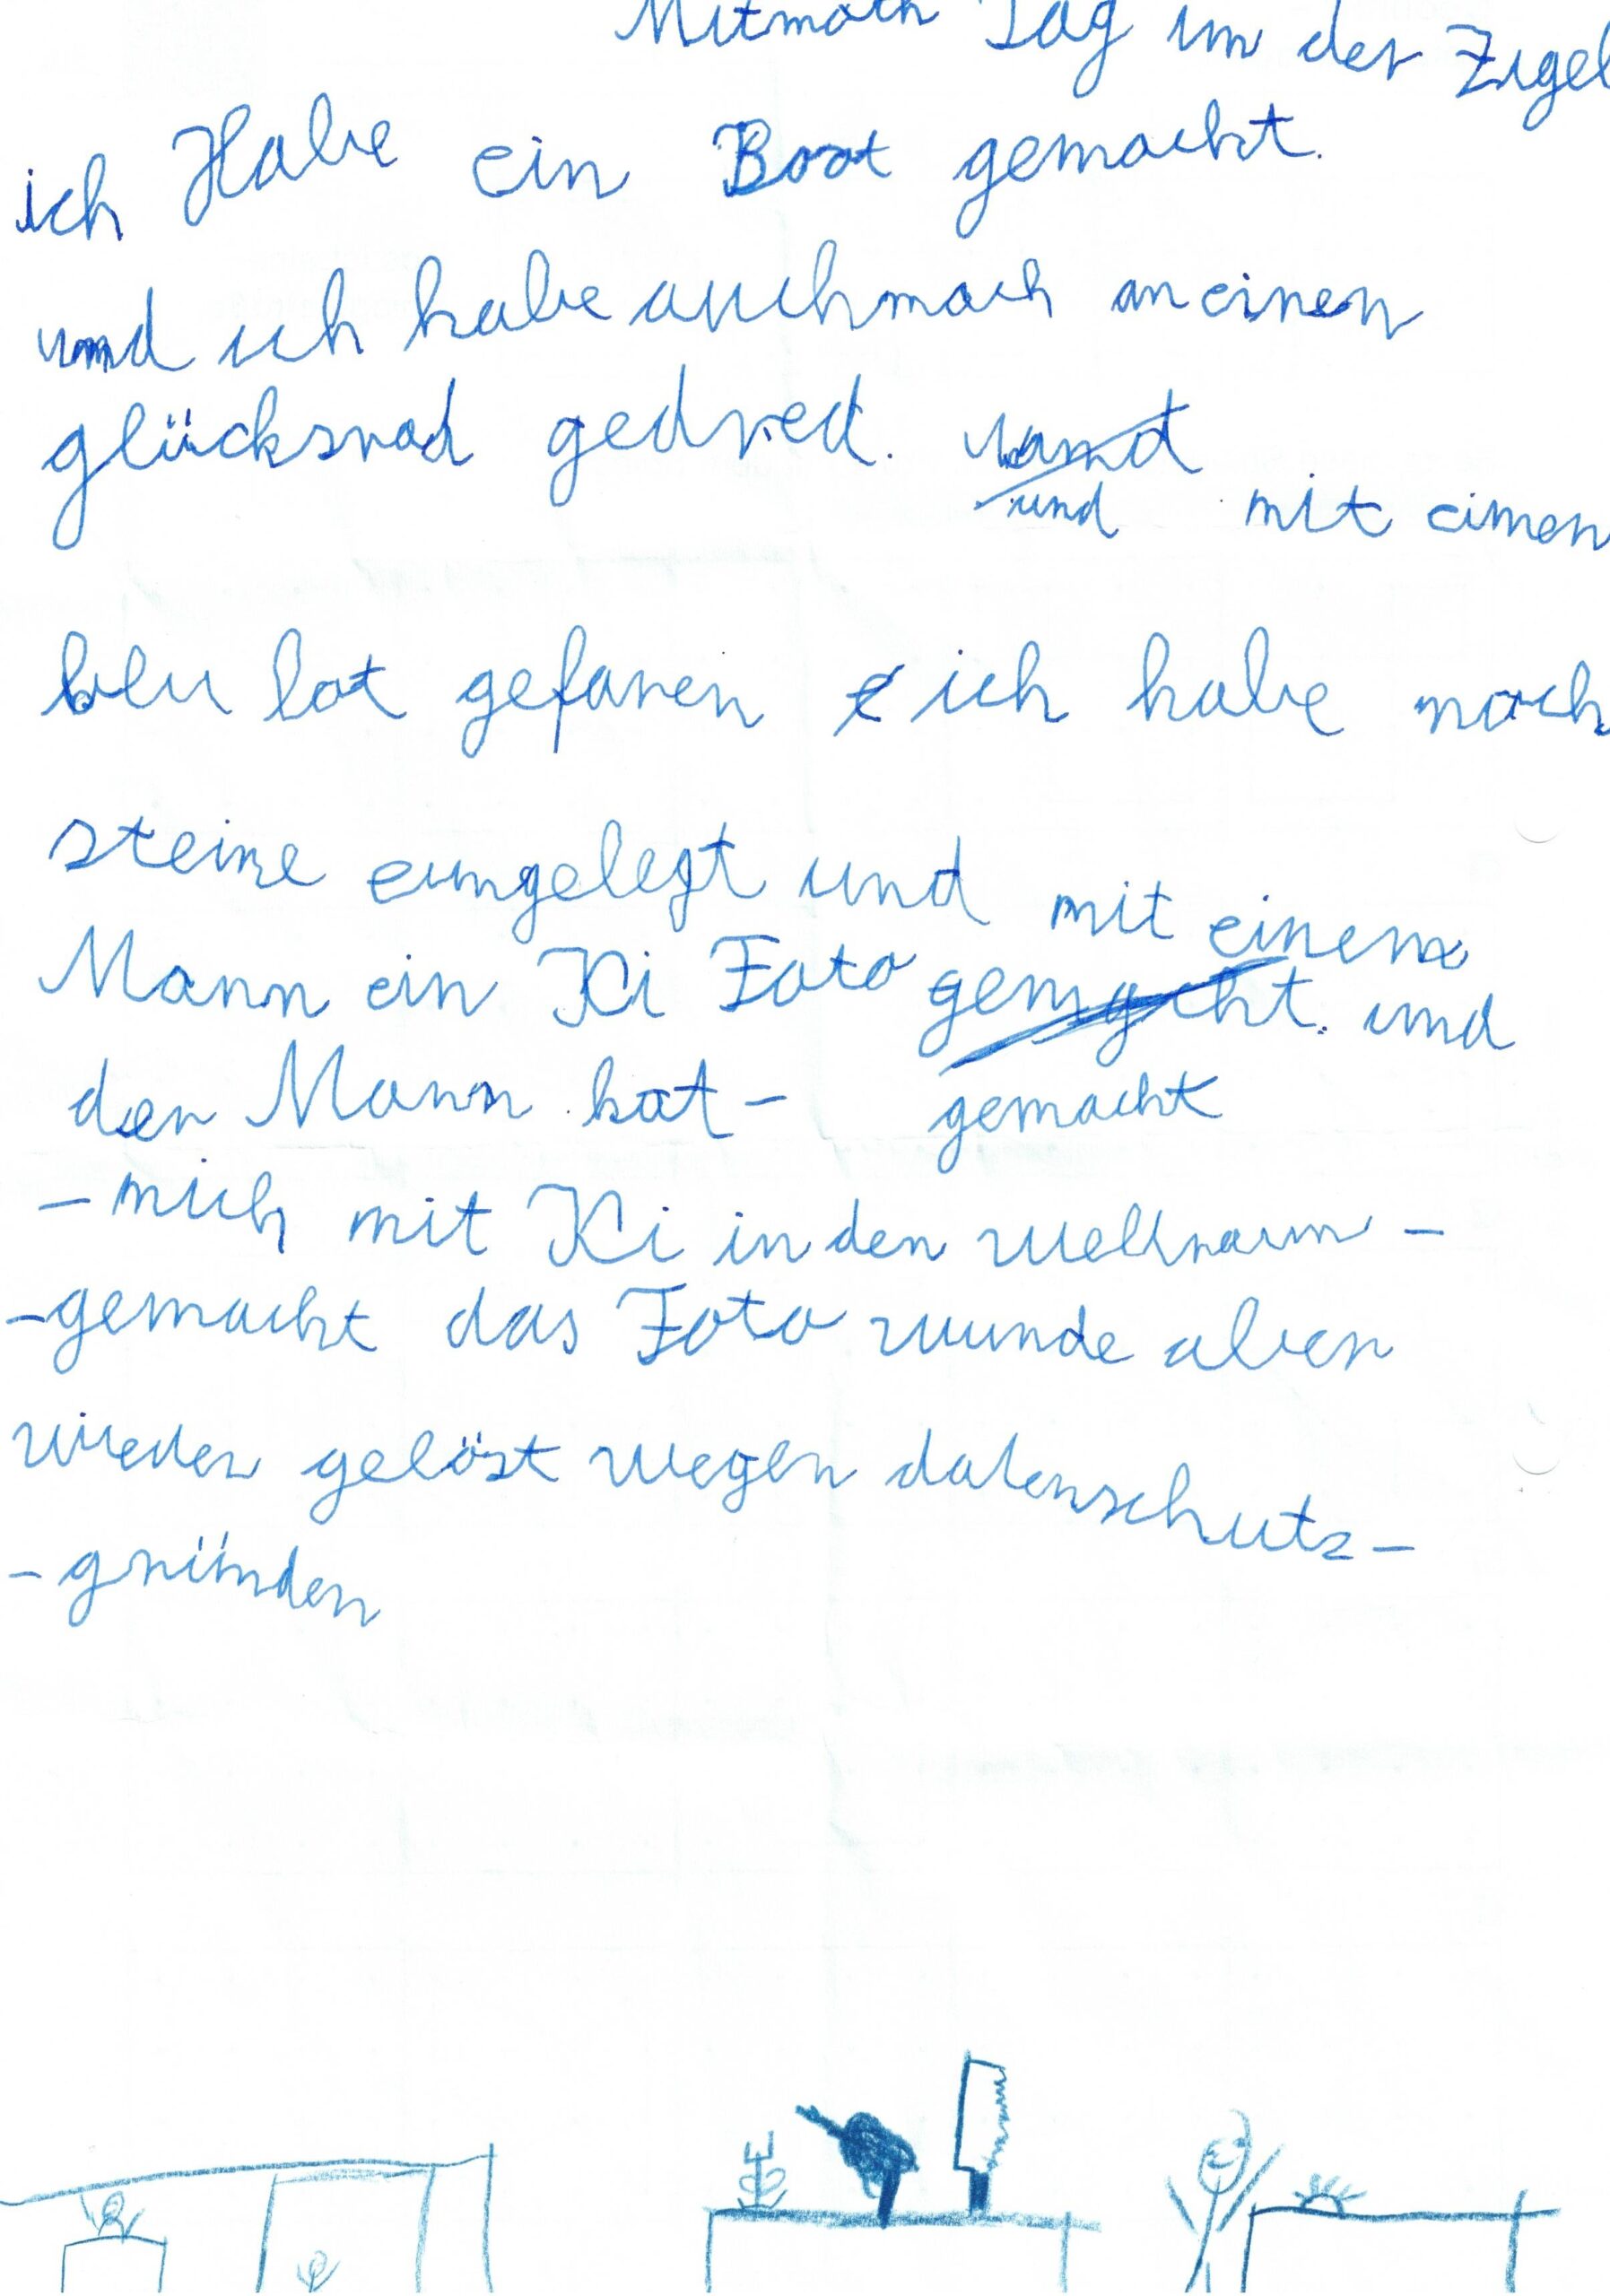 Mitmach Tag im der Zigel
ich Habe ein Boot gemacht.
und ich habe auch noch an einen
glücksrad gedred.
und mit einen
bler bot gefaren ich habe noch
steine eingelegt und mit einem
Mann ein Ki Foto gemacht. und
der Mann hat- gemacht
-mich mit Ki in den wellraum-
-gemacht das Foto wurde aber
wieder gelöst wegen datenschutz-
-gründen